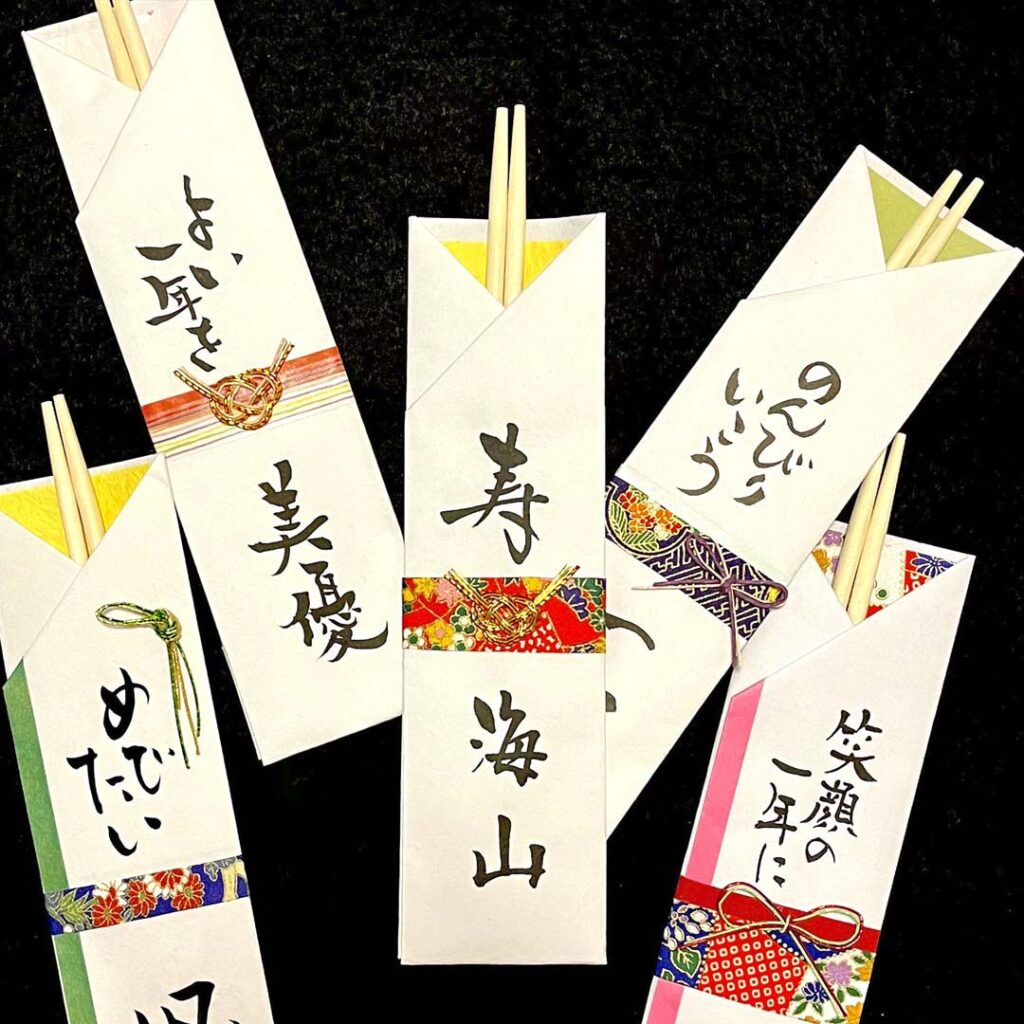 よい
一年を
美優
寿
海山
のんびり
いこう
めで
たい
笑顔の
一年に